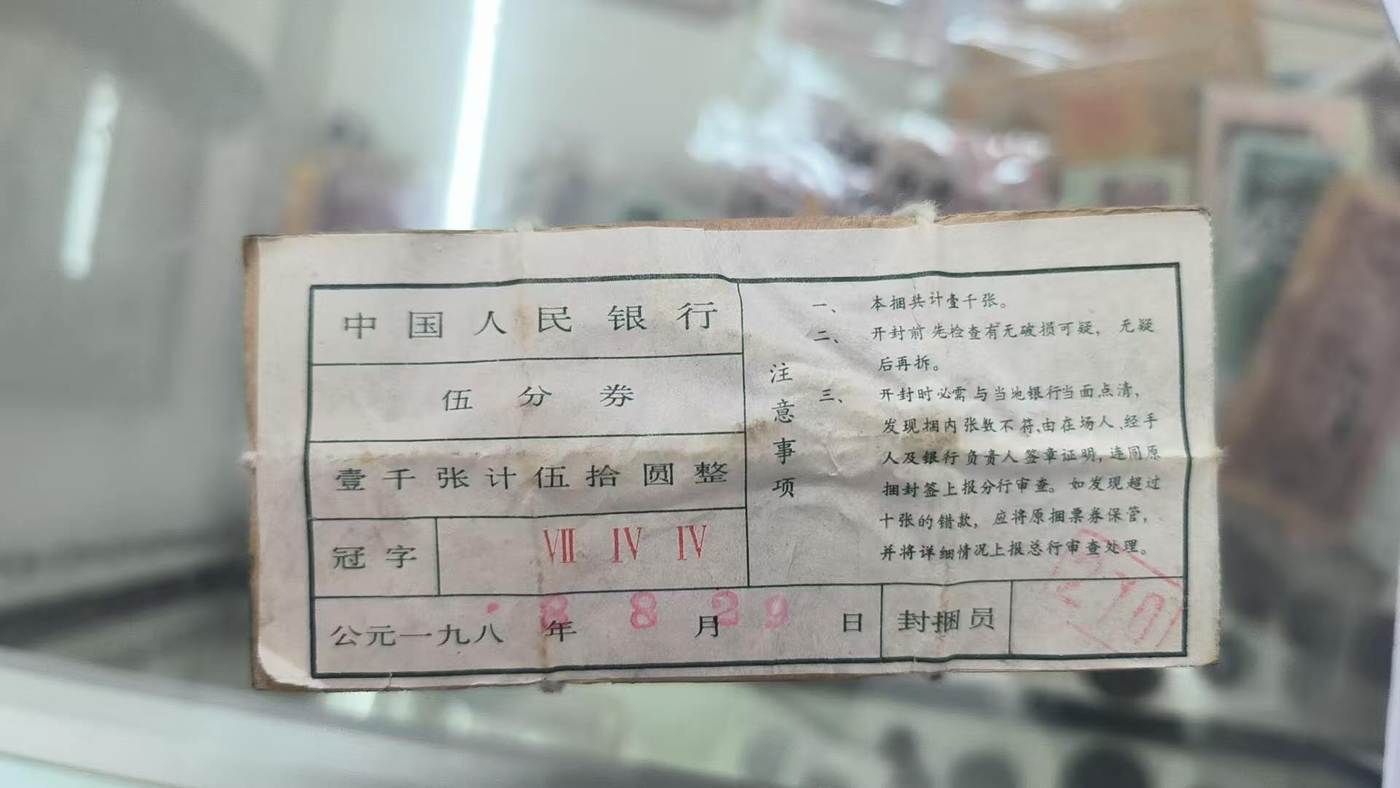 中国人民银行
伍分券
壹千张计伍拾圆整
冠字 VII IV IV
公元一九八 年 8 月 29 日 封捆员
注意事项
一、 本捆共计壹千张。
二、 开封前先检查有无破损可疑，无疑
后再拆。
三、 开封时必需与当地银行当面点清，
发现捆内张数不符、由在场人、经手
人及银行负责人签章证明，连同原
捆封签上报分行审查。如发现超过
十张的错款，应将原捆票券保管，
并将详细情况上报总行审查处理。